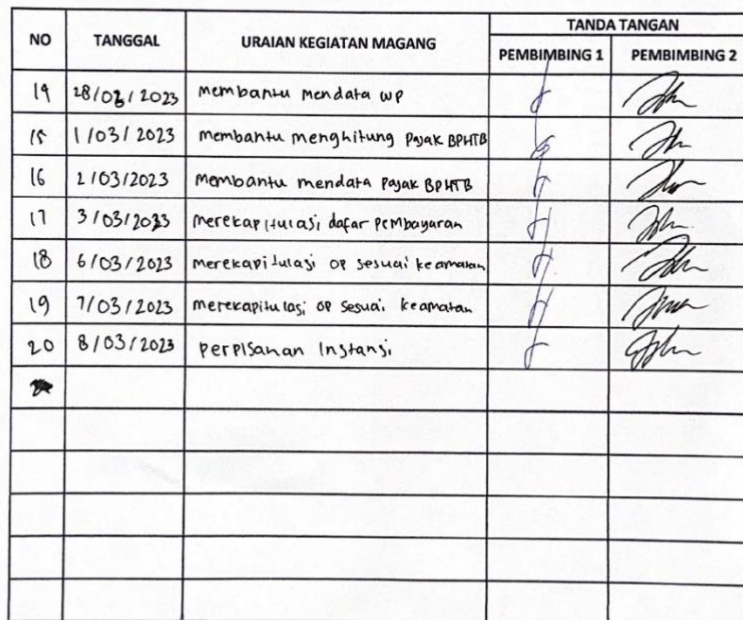 NO TANGGAL URAIAN KEGIATAN MAGANG TANDA TANGAN
PEMBIMBING 1 PEMBIMBING 2
14 28/02/2023 Membantu Mendata WP
15 1/03/2023 membantu menghitung Pajak BPHTB
16 2/03/2023 Membantu mendata Pajak BPHTB
17 3/03/2023 merekapitulasi dafar Pembayaran
18 6/03/2023 merekapitulasi OP sesuai keamatan
19 7/03/2023 merekapitulasi OP sesuai keamatan
20 8/03/2023 perpisanan Instansi